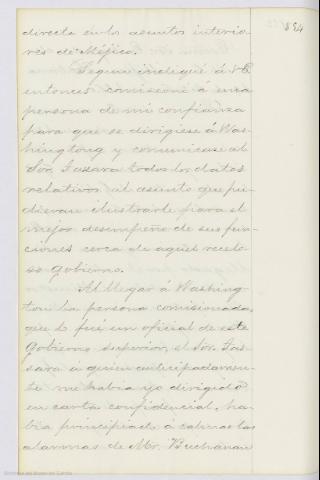 854
directa en los asuntos interio-
res de Méjico.
Segun indiqué á VE
entonces comisioné á una
persona de mi confianza
para que se dirigiese á Was-
hingtong y comunicase al
Sor. Tassara todos los datos
relativos al asunto que pu-
dieran ilustrarle para el
mejor desempeño de sus fun-
ciones cerca de aquel recelo-
so gobierno.
Al llegar á Washing-
ton la persona comisionada,
que lo fué un oficial de este
Gobierno superior, el Sor. Tas-
sara á quien anticipadamen-
te me habia yo dirigido
en carta confidencial, ha-
bia principiado á calmar las
alarmas de Mr. Buchanan